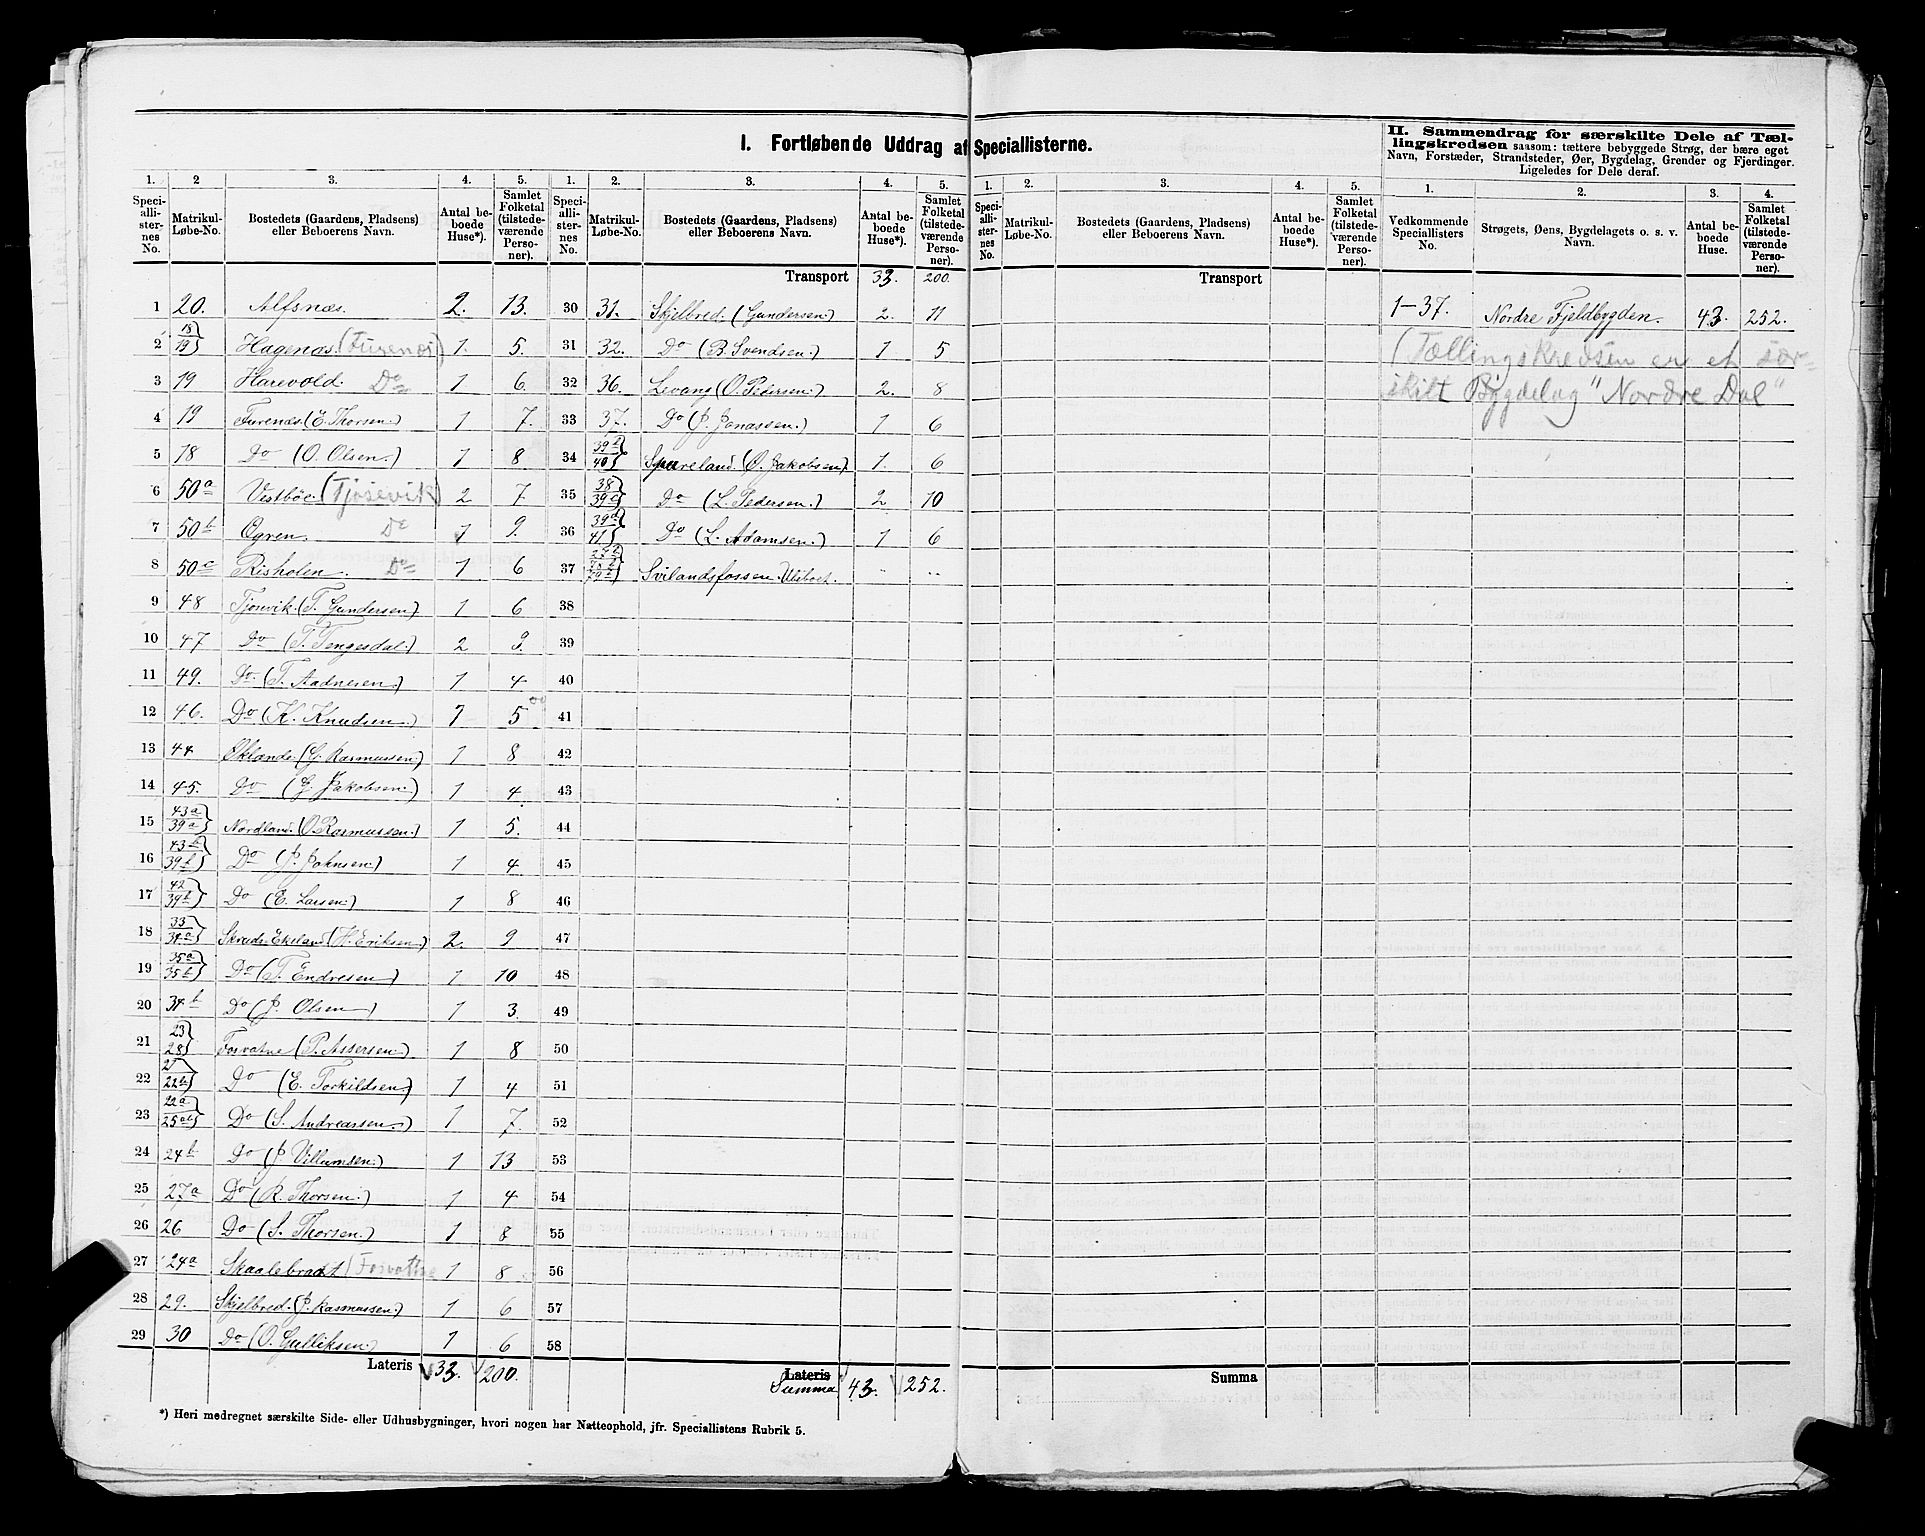 I. Fortløbende Uddrag af Speciallisterne.
II. Sammendrag for særskilte Dele af Tæl-
lingskredsen saasom: tættere bebyggede Strøg, der bære eget
Navn, Forstæder, Strandsteder, Øer, Bygdelag, Grender og Fjerdinger.
Ligeledes for Dele deraf.
1. 2 3. 4. 5. 1. 2. 3. 4. 5. 1. 2. 3. 4. 5. 1. 2. 3. 4.
Speciallisternes No. Matrikul-Løbe-No. Bostedets (Gaardens, Pladsens) eller Beboerens Navn. Antal beboede Huse*). Samlet Folketal (tilstedeværende Personer).
Speciallisternes No. Matrikul-Løbe-No. Bostedets (Gaardens, Pladsens) eller Beboerens Navn. Antal beboede Huse*). Samlet Folketal (tilstedeværende Personer).
Speciallisternes No. Matrikul-Løbe-No. Bostedets (Gaardens, Pladsens) eller Beboerens Navn. Antal beboede Huse*). Samlet Folketal (tilstedeværende Personer).
Vedkommende Speciallisters No. Strøgets, Øens, Bygdelagets o. s. v. Navn. Antal beboede Huse. Samlet Folketal (tilstedeværende Personer).
1 20. Alfsnæs. 2. 13.
2 18/19 Hagenæs. (Furenæs) 1. 5.
3 19 Harevold. Do 1 6.
4 19 Furenæs. (E. Thorsen.) 1 7.
5 18 Do (O. Olsen.) 1 8
6 50a Vestbøe (Tjøsevik) 2 7.
7 50b Ogren. Do 1 9.
8 50c Risholen. Do 1 6
9 48 Tjosevik. (T. Gundersen) 1 6
10 47 Do (T. Tengesdal.) 2 9.
11 49. Do. (T. Aadnesen) 1 4
12 46. Do (K. Knudsen.) 1 5
13 44 Øklande. (G. Rasmussen) 1 8
14 45. Do (G. Jakobsen.) 1 4
15 43a/39a Nordland. (O. Rasmussen.) 1 5.
16 43b/39b Do (J. Johnsen.) 1 4
17 42/34b Do (E. Larsen.) 1 8
18 33/34a Skreds. Ekeland (H. Eriksen) 2. 9
19 35a/35b Do (T. Endresen) 1 10
20 34b Do (J. Olsen) 1 3.
21 23/28 Fosvatne (P. Assersen.) 1 8
22 21/22b Do (E. Torkildsen.) 1 4
23 22a/25ab Do (S. Andreassen.) 1 7.
24 24b Do (J. Villumsen.) 1 13
25 27a Do (R. Thorsen.) 1 4
26 26 Do (S. Thorsen.) 1 8
27 24a Skaalebraat (Fosvatne 1 8
28 29. Skjelbred. (J. Rasmussen.) 1 6
29 30 Do (O. Gulliksen.) 1 6
Lateris 33. 200.
Transport 33. 200.
30 31. Skjelbred. (Gundersen.) 2. 11
31 32. Do (B. Svendsen.) 1 5
32 36. Levang (O. Pedersen.) 2. 8
33 37. Do (J. Jonassen.) 1 6
34 40 Spareland. (O. Jakobsen) 1. 6
35 38/39c Do (L. Pedersen.) 2. 10
36 39d/41 Do (L. Adamsen.) 1 6
37 Svilandsfossen.
38
39
40
41
42
43
44
45
46
47
48
49
50
51
52
53
54
55
56
57
58
Lateris
Summa 43. 252.
Transport
Summa
1-37. Nordre Fjeldbygden. 43. 252.
(Tællingskredsen er et sær-
skilt Bygdelag "Nordre Dal"
*) Heri medregnet særskilte Side- eller Udhusbygninger, hvori nogen har Natteophold, jfr. Speciallistens Rubrik 5.